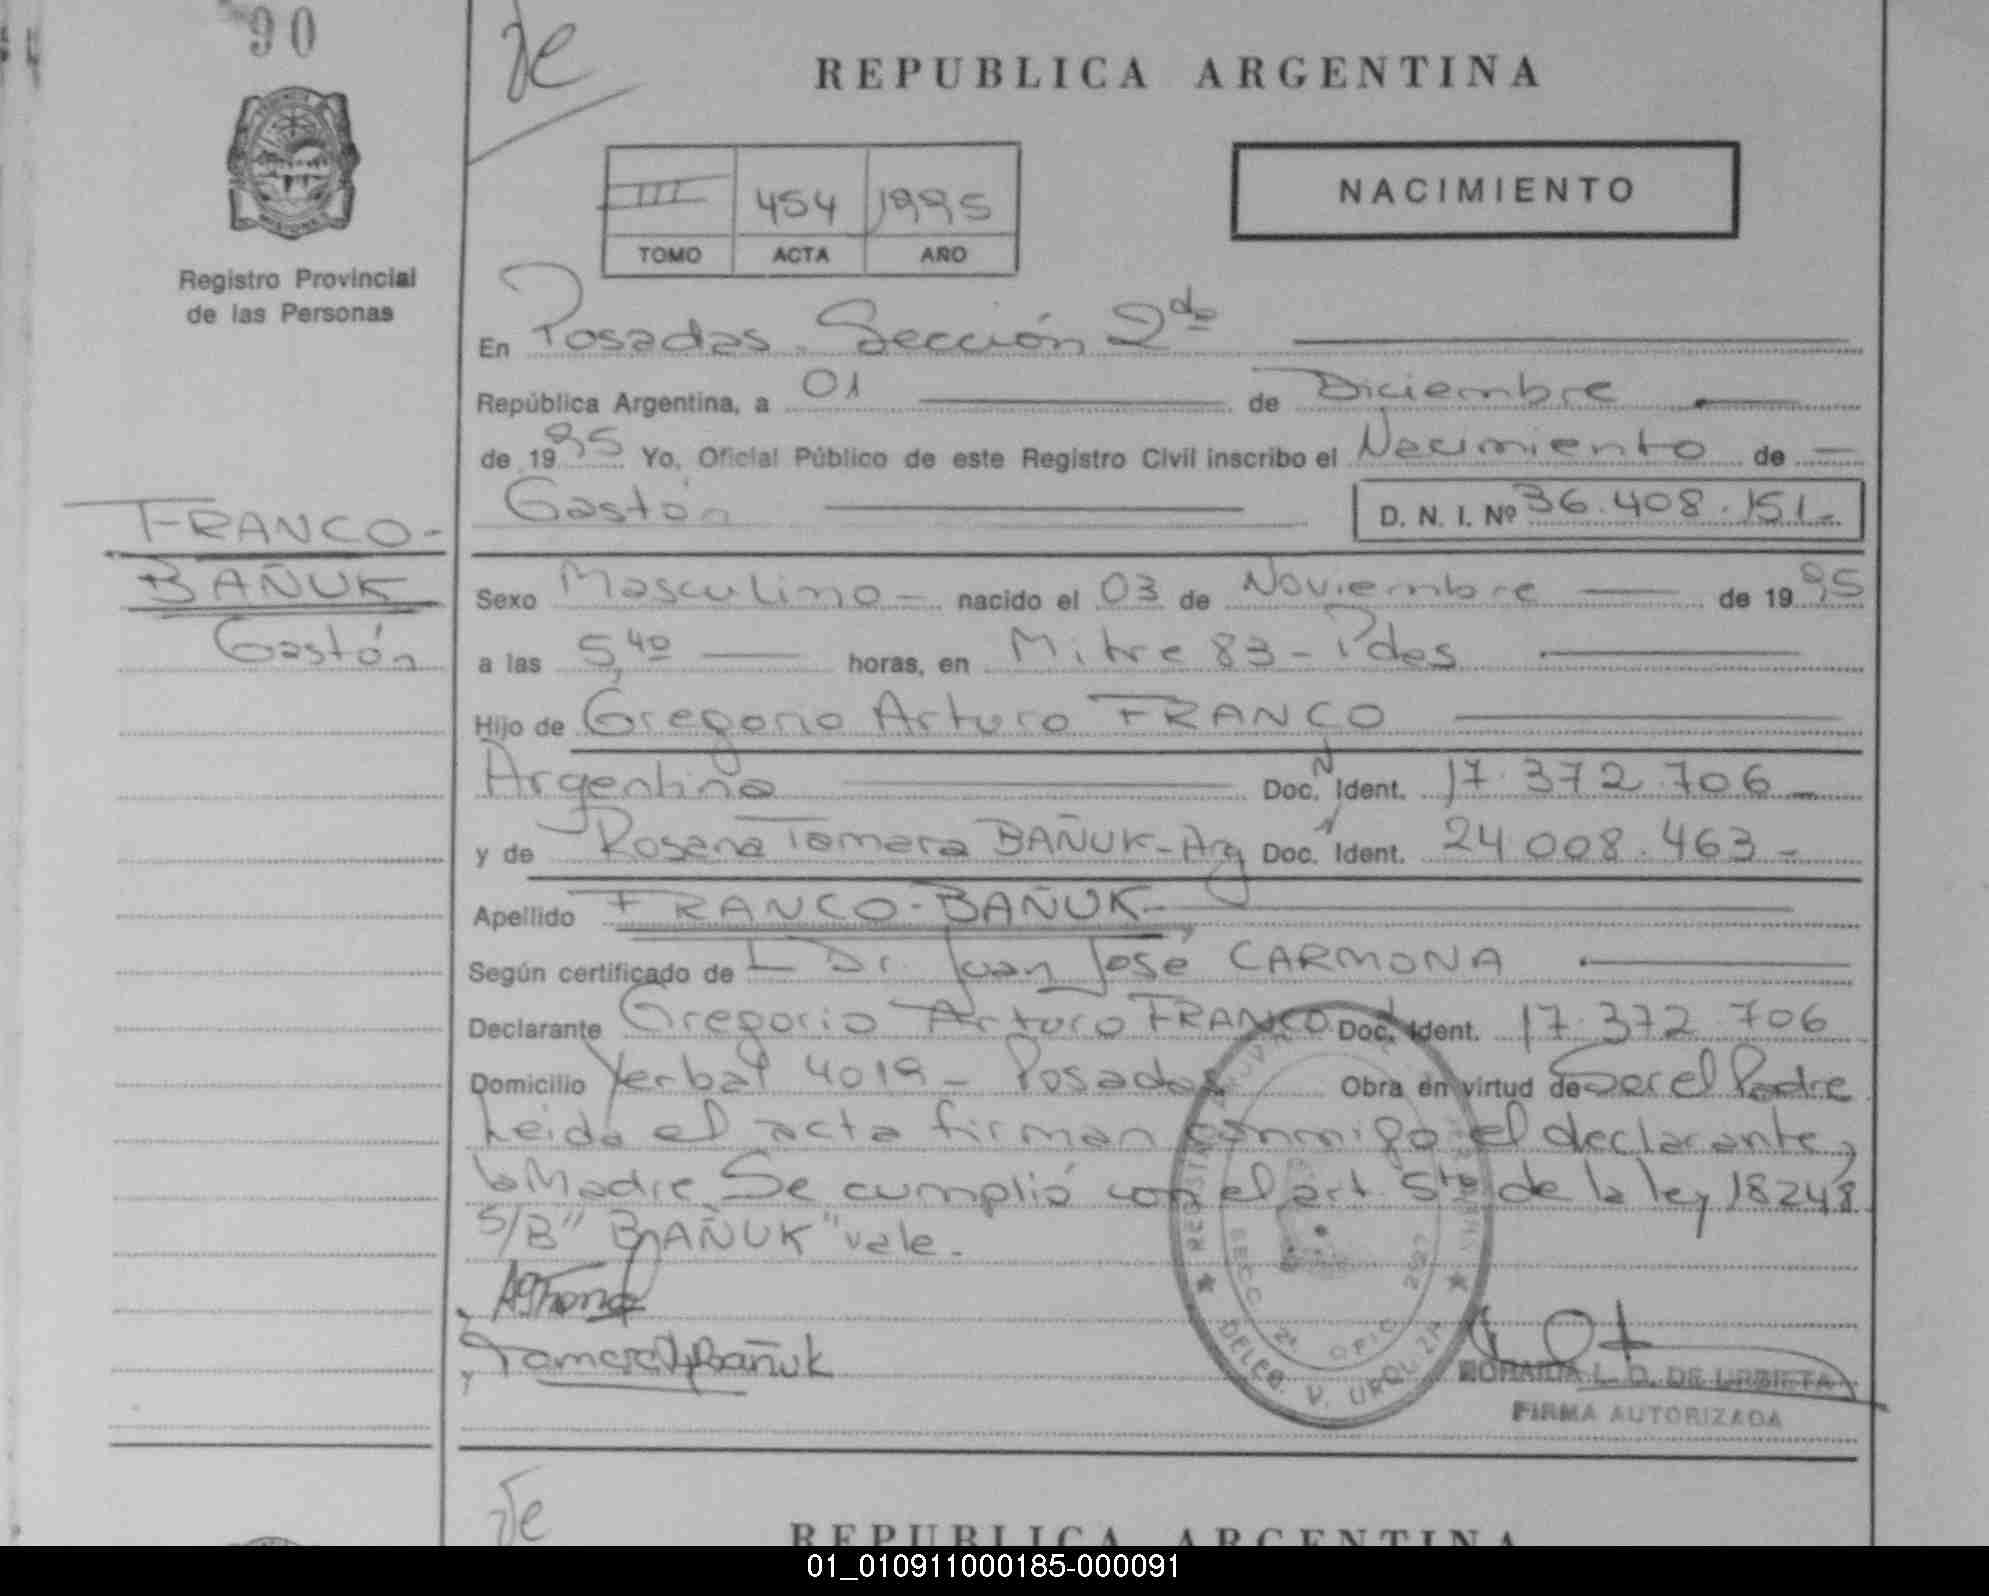 90
Te
REPUBLICA ARGENTINA
III 454 1995
TOMO ACTA AÑO
NACIMIENTO
Registro Provincial
de las Personas
En Posadas Sección 2da
República Argentina, a 01 de Diciembre
de 1995 Yo, Oficial Público de este Registro Civil inscribo el Nacimiento de
Gastón D. N. I. Nº 36.408.151.-
FRANCO-
BAÑUK
Gastón
Sexo Masculino - nacido el 03 de Noviembre de 1995
a las 5,40 horas, en Mitre 83 - Pdas
Hijo de Gregorio Arturo FRANCO
Argentino Doc. N Ident. 17.372.706 -
y de Rosana Tamara BAÑUK - Arg Doc. N Ident. 24.008.463 -
Apellido FRANCO-BAÑUK-
Según certificado de Dr. Juan José CARMONA
Declarante Gregorio Arturo FRANCO Doc. Ident. 17.372.706
Domicilio Yerbal 4019 - Posadas Obra en virtud de Ser el Padre
Leida el acta firman conmigo el declarante,
la Madre Se cumplió con el art. 5to de la ley 18248
S/B" BAÑUK "vale.
Tamara BAñuk
SECC. 2a OFIC. 2027
DELEG. V. URQUIZA
L. D. DE URBIETA
FIRMA AUTORIZADA
Te
REPUBLICA ARGENTINA
01_010911000185-000091